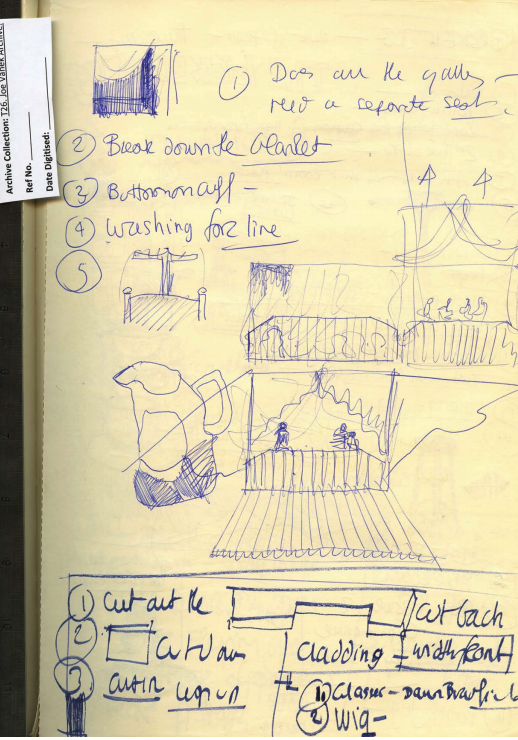 Archive Collection: T26 Joe Vanek Archive
Ref No.
Date Digitised:
① Does all the
need a separate seat.
② Break down the blanket
③ Button on cuff –
④ Washing for line
⑤
① Cut out the
② Cut down
③
Cut back
Cladding – width/front
① Glasses – Dawn Bradfield
② Wig –